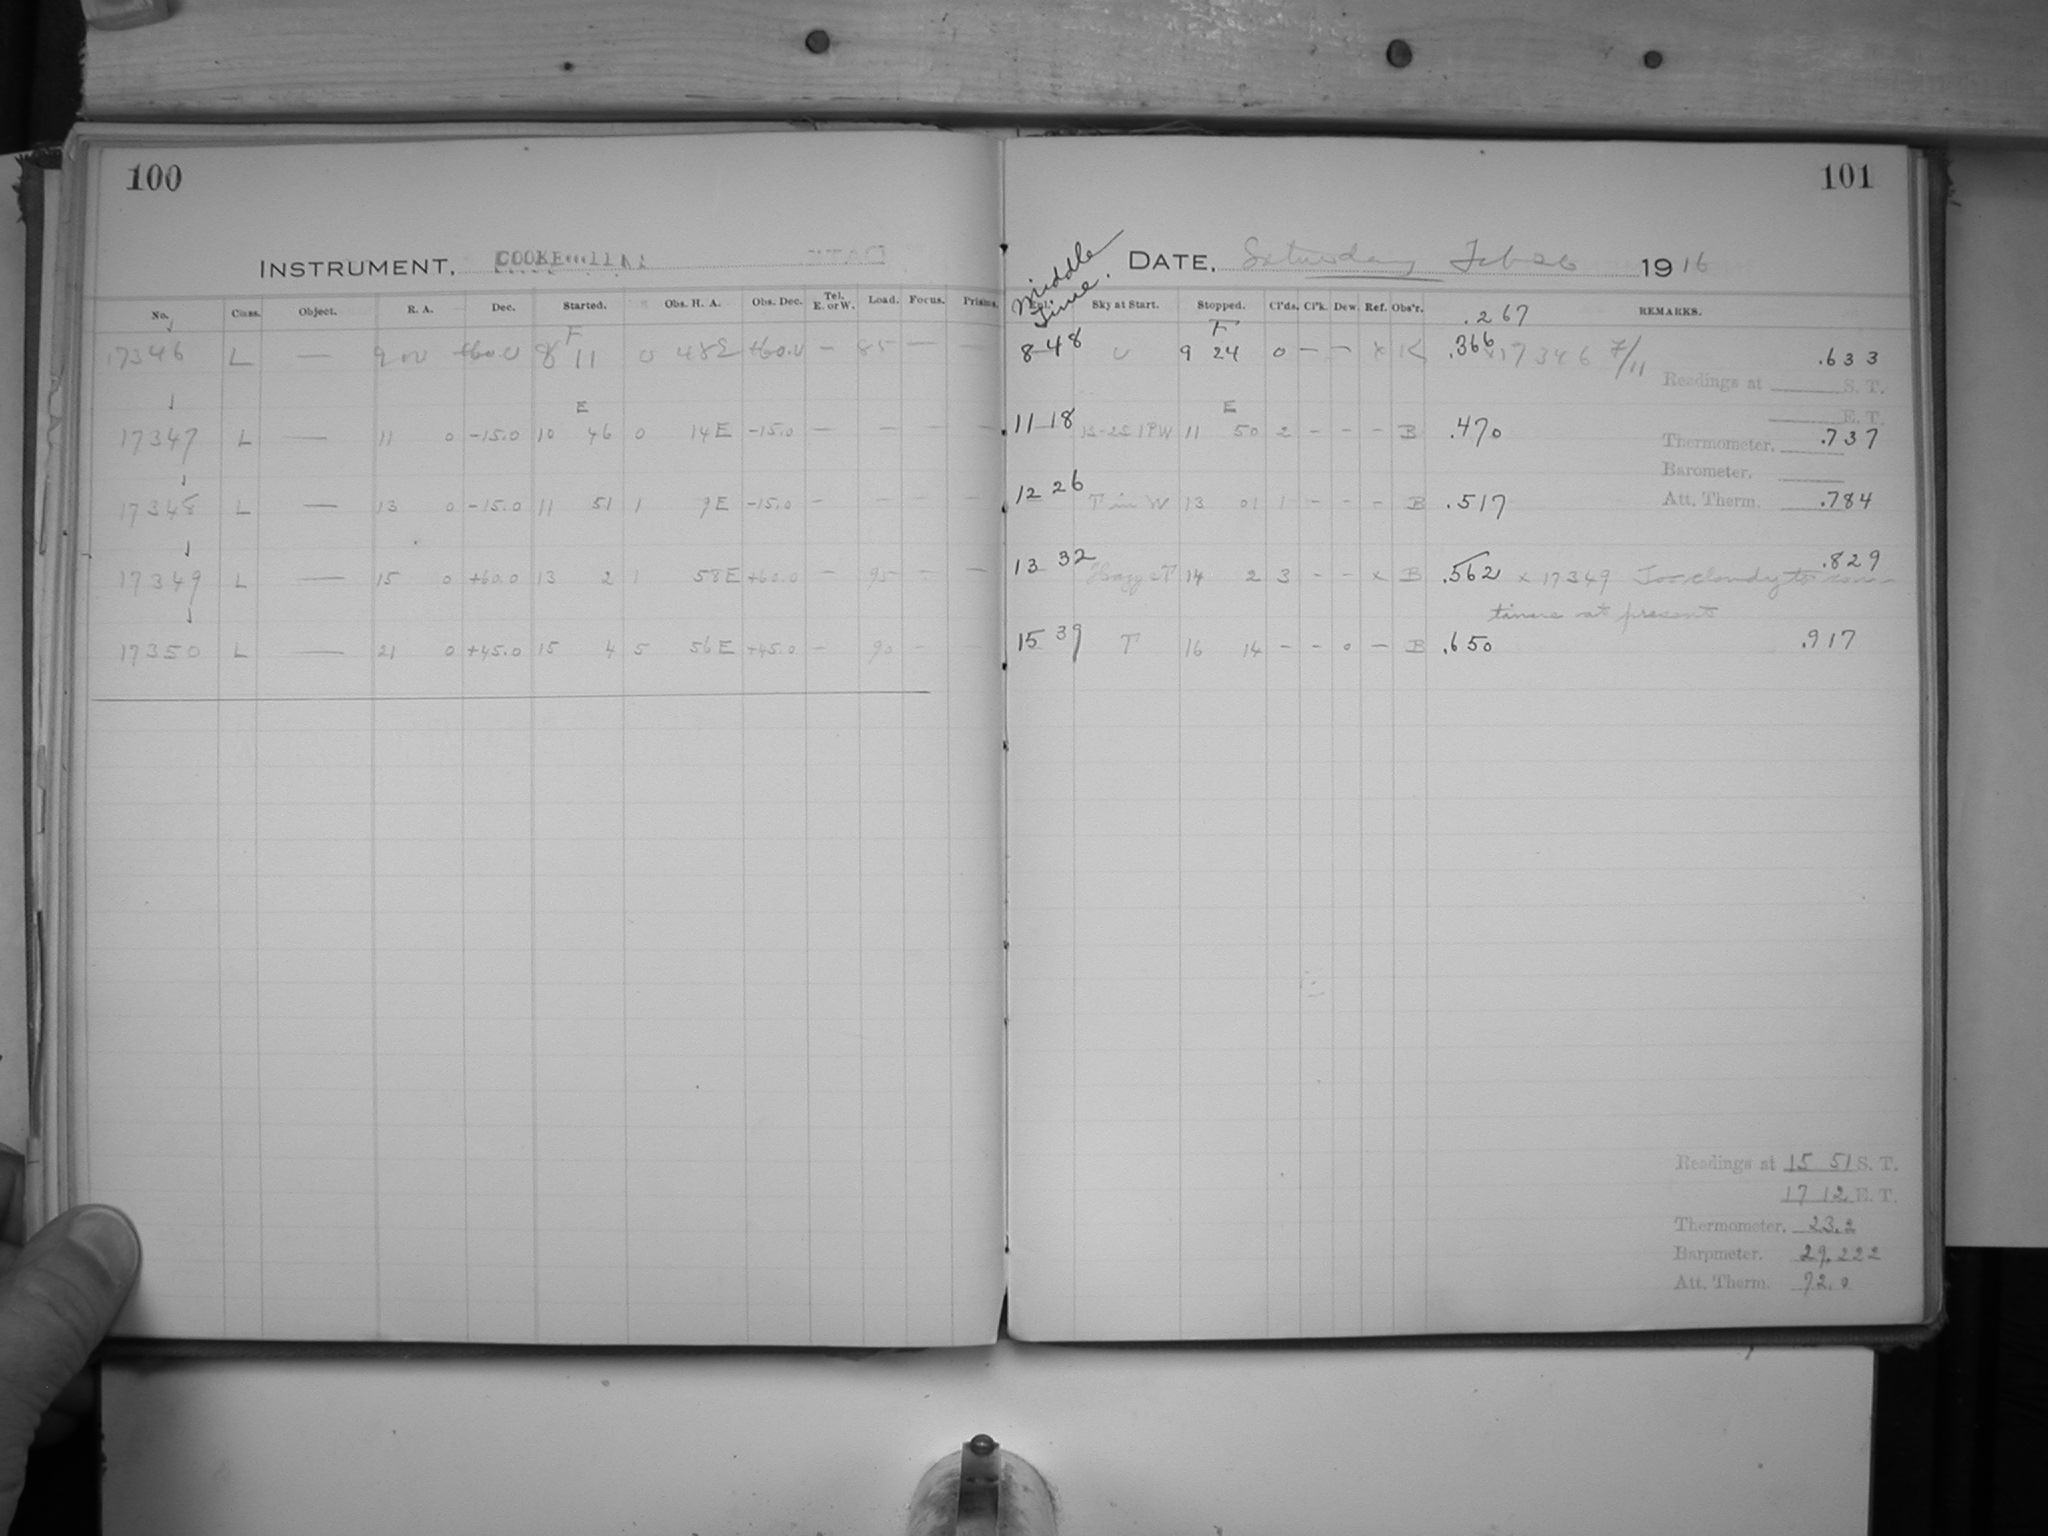 100
INSTRUMENT, COOKE
No. Class. Object. R. A. Dec. Started. Obs. H. A. Obs. Dec. Tel. E. or W. Load. Focus. Prisms.
F
17346 L — 9 00 +60.0 8 11 0 48E +60.0 — 85 — —
E
17347 L — 11 0 -15.0 10 46 0 14E -15.0 — — — —
17348 L — 13 0 -15.0 11 51 1 9E -15.0 — — — —
17349 L — 15 0 +60.0 13 2 1 58E +60.0 — 95 — —
17350 L — 21 0 +45.0 15 4 5 56E +45.0 — 90 — —
101
Middle Time.
DATE, Saturday Feb 26 1916
Sky at Start. Stopped. Cl'ds. Cl'k. Dew. Ref. Obs'r. .267 REMARKS.
F
8 48 U 9 24 0 — — x K .366 x 17346 7/11 .633
Readings at S. T.
E
E. T.
11 18 11 50 2 - - - B .470 Thermometer. .737
Barometer.
12 26 T in W 13 01 1 - - - B .517 Att. Therm. .784
13 32 Hazy & T 14 2 3 - - x B .562 x 17349 Too cloudy to con- .829
tinue at present
15 39 T 16 14 - - 0 - B .650 .917
Readings at 15 51 S. T.
17 12 E. T.
Thermometer. 23.2
Barometer. 29.222
Att. Therm. 72.0